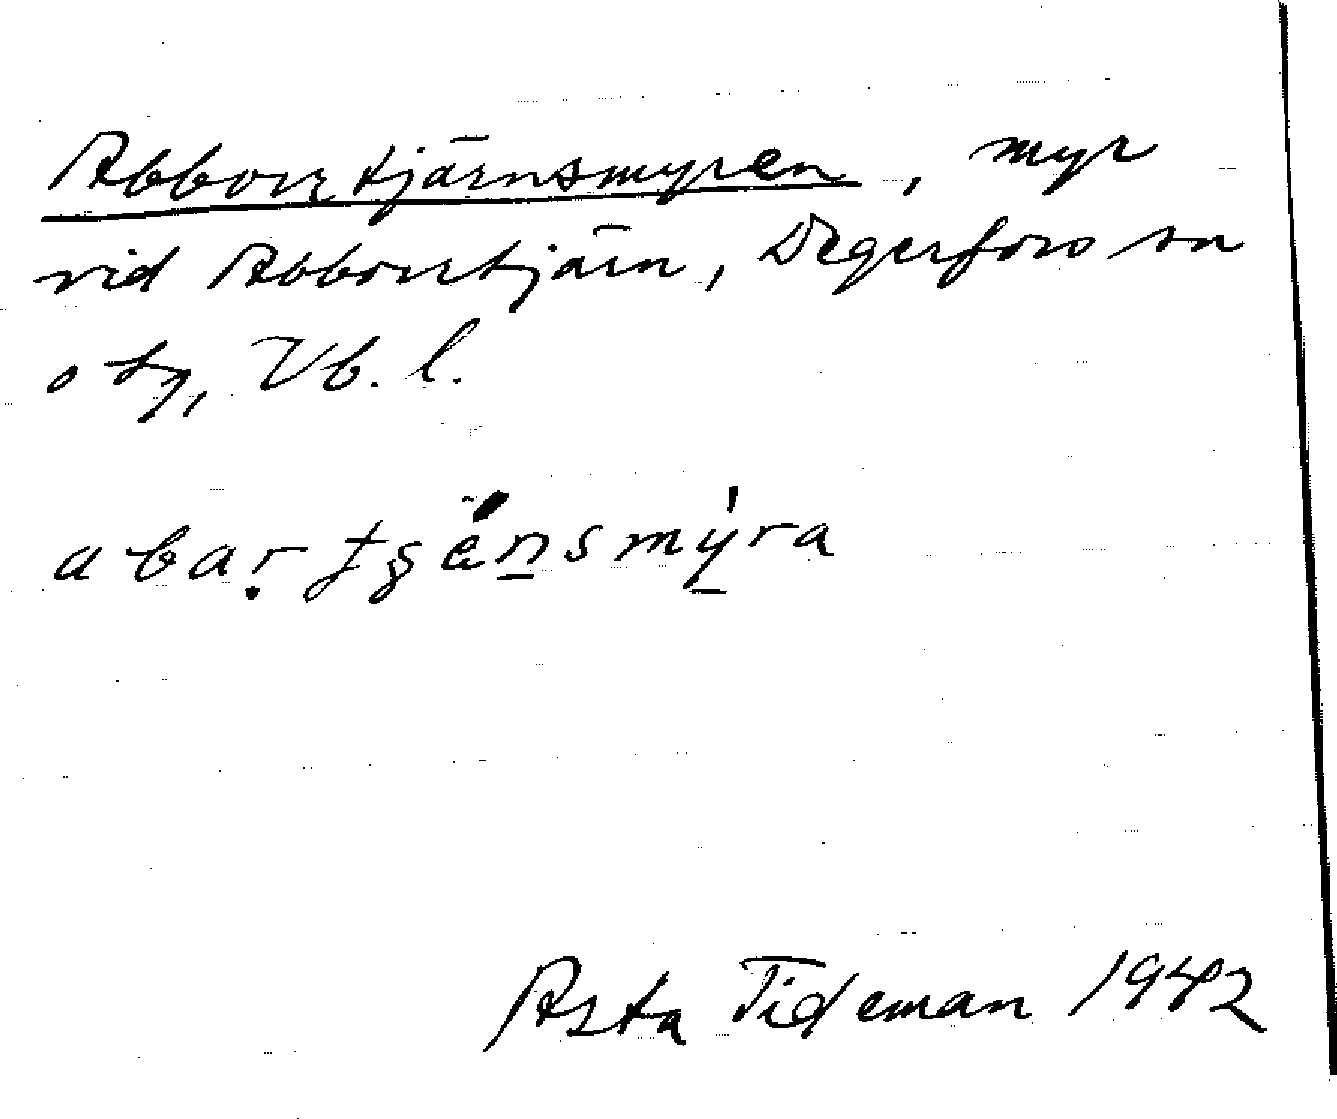 Abborrtjärnsmyren, myr
vid Abborrtjärn, Degerfors sn
o tg, Vb. l.
abar tşänsmýra
Asta Tideman 1942